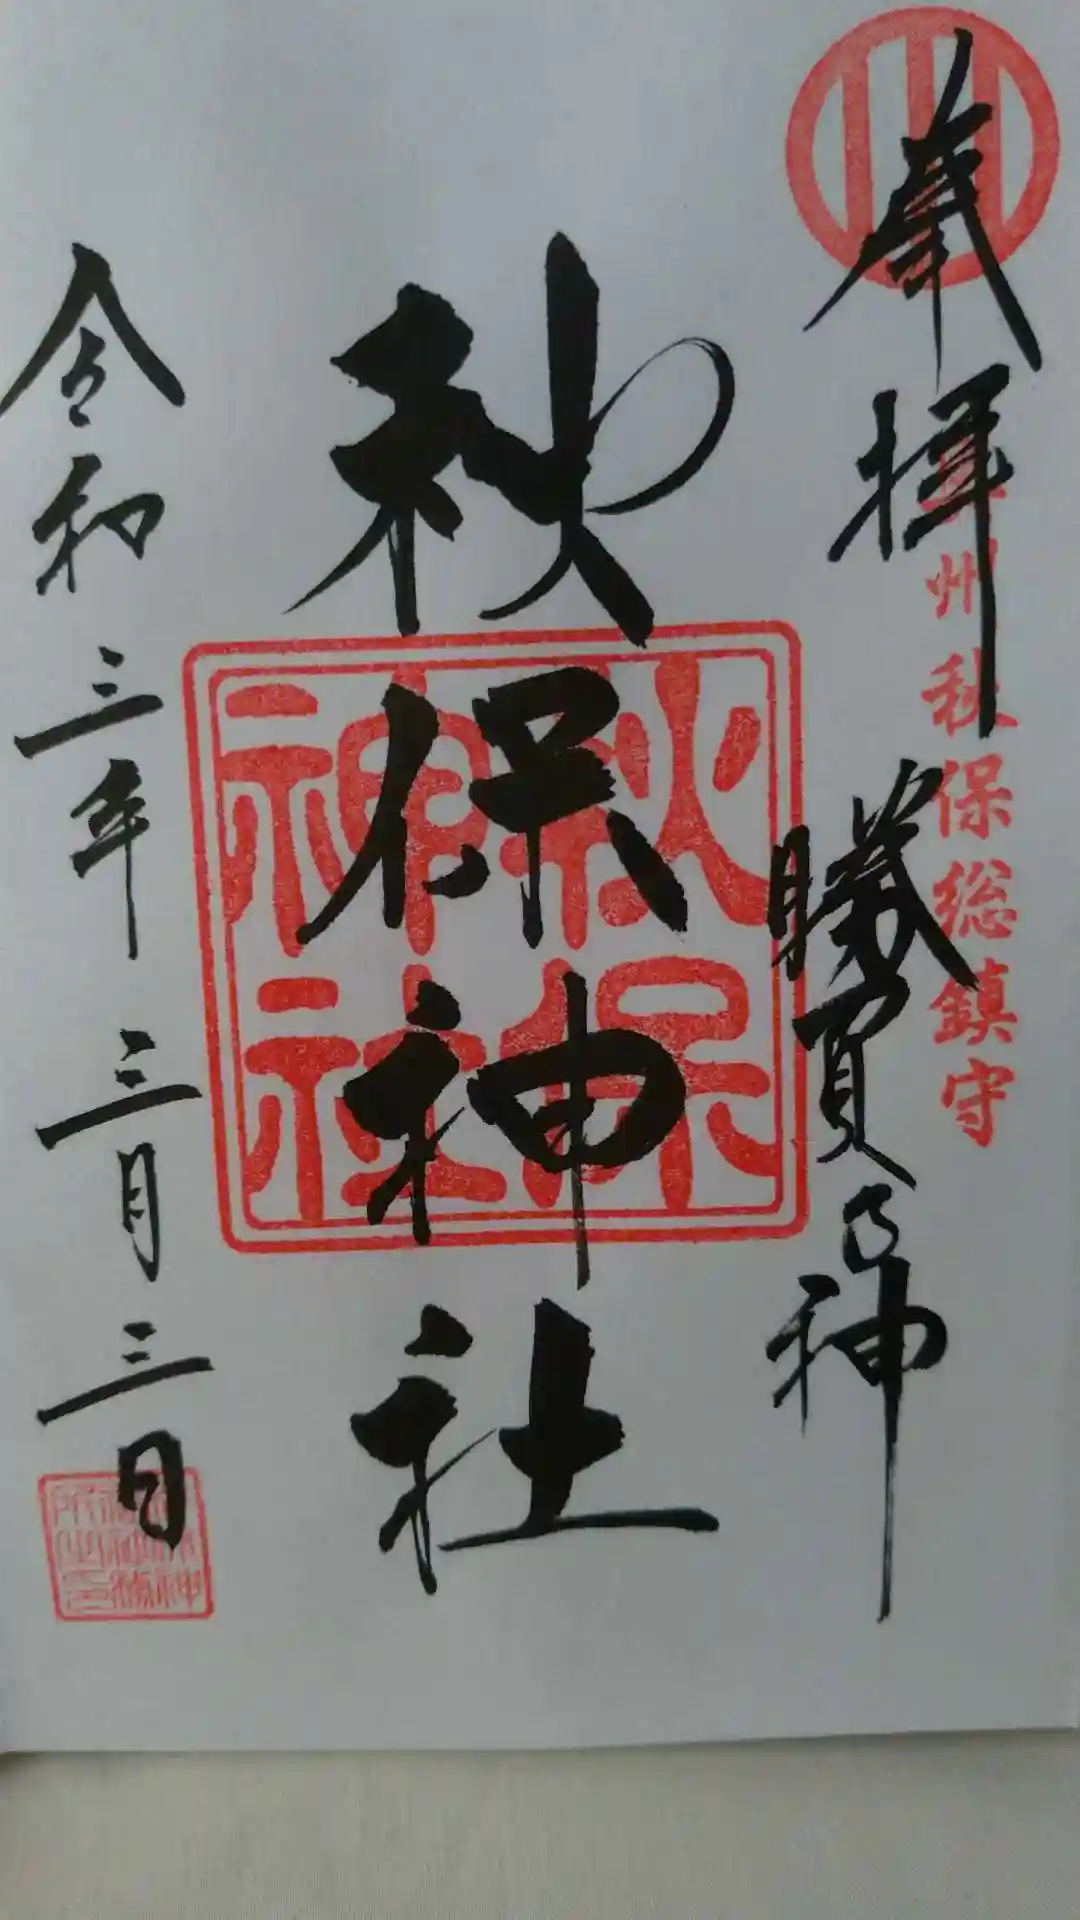 奉拝
奥州秋保総鎮守
勝負乃神
秋保神社
秋保
神社
令和三年三月三日